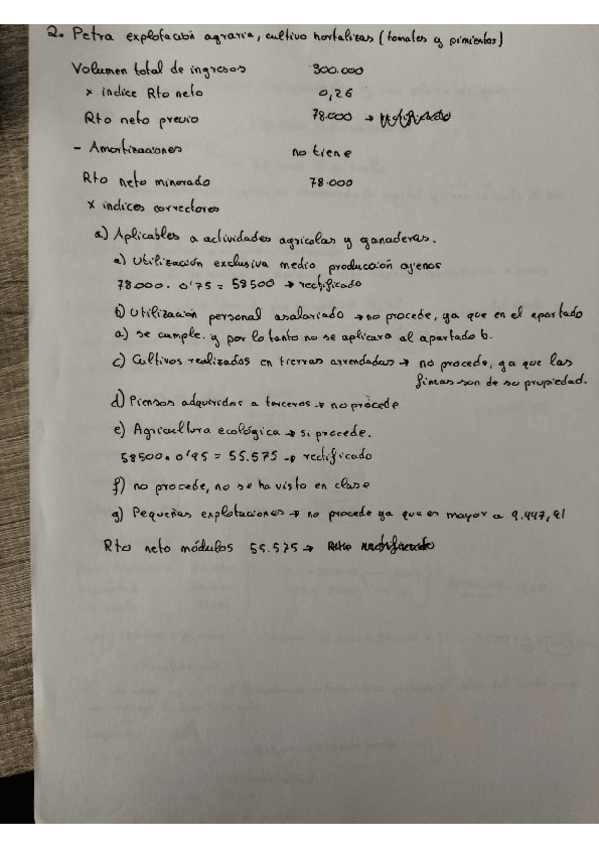 2. Petra explotación agraria, cultivo hortalizas (tomates y pimientos)
Volumen total de ingresos 300.000
x indice Rto neto 0,26
Rto neto previo 78.000 →
- Amortizaciones no tiene
Rto neto minorado 78.000
x indices correctores
a) Aplicables a actividades agricolas y ganaderas.
a) Utilización exclusiva medio producción ajenos
78.000 . 0'75 = 58500 → rectificado
b) Utilización personal asalariado → no procede, ya que en el apartado
a) se cumple. y por lo tanto no se aplicara al apartado b.
c) Cultivos realizados en tierras arrendadas → no procede, ya que las
fincas son de su propiedad.
d) Piensos adquiridos a terceros → no procede
e) Agricultura ecológica → si procede.
58500 . 0'95 = 55.575 → rectificado
f) no procede, no se ha visto en clase
g) Pequeñas explotaciones → no procede ya que es mayor a 9.447,91
Rto neto módulos 55.575 →